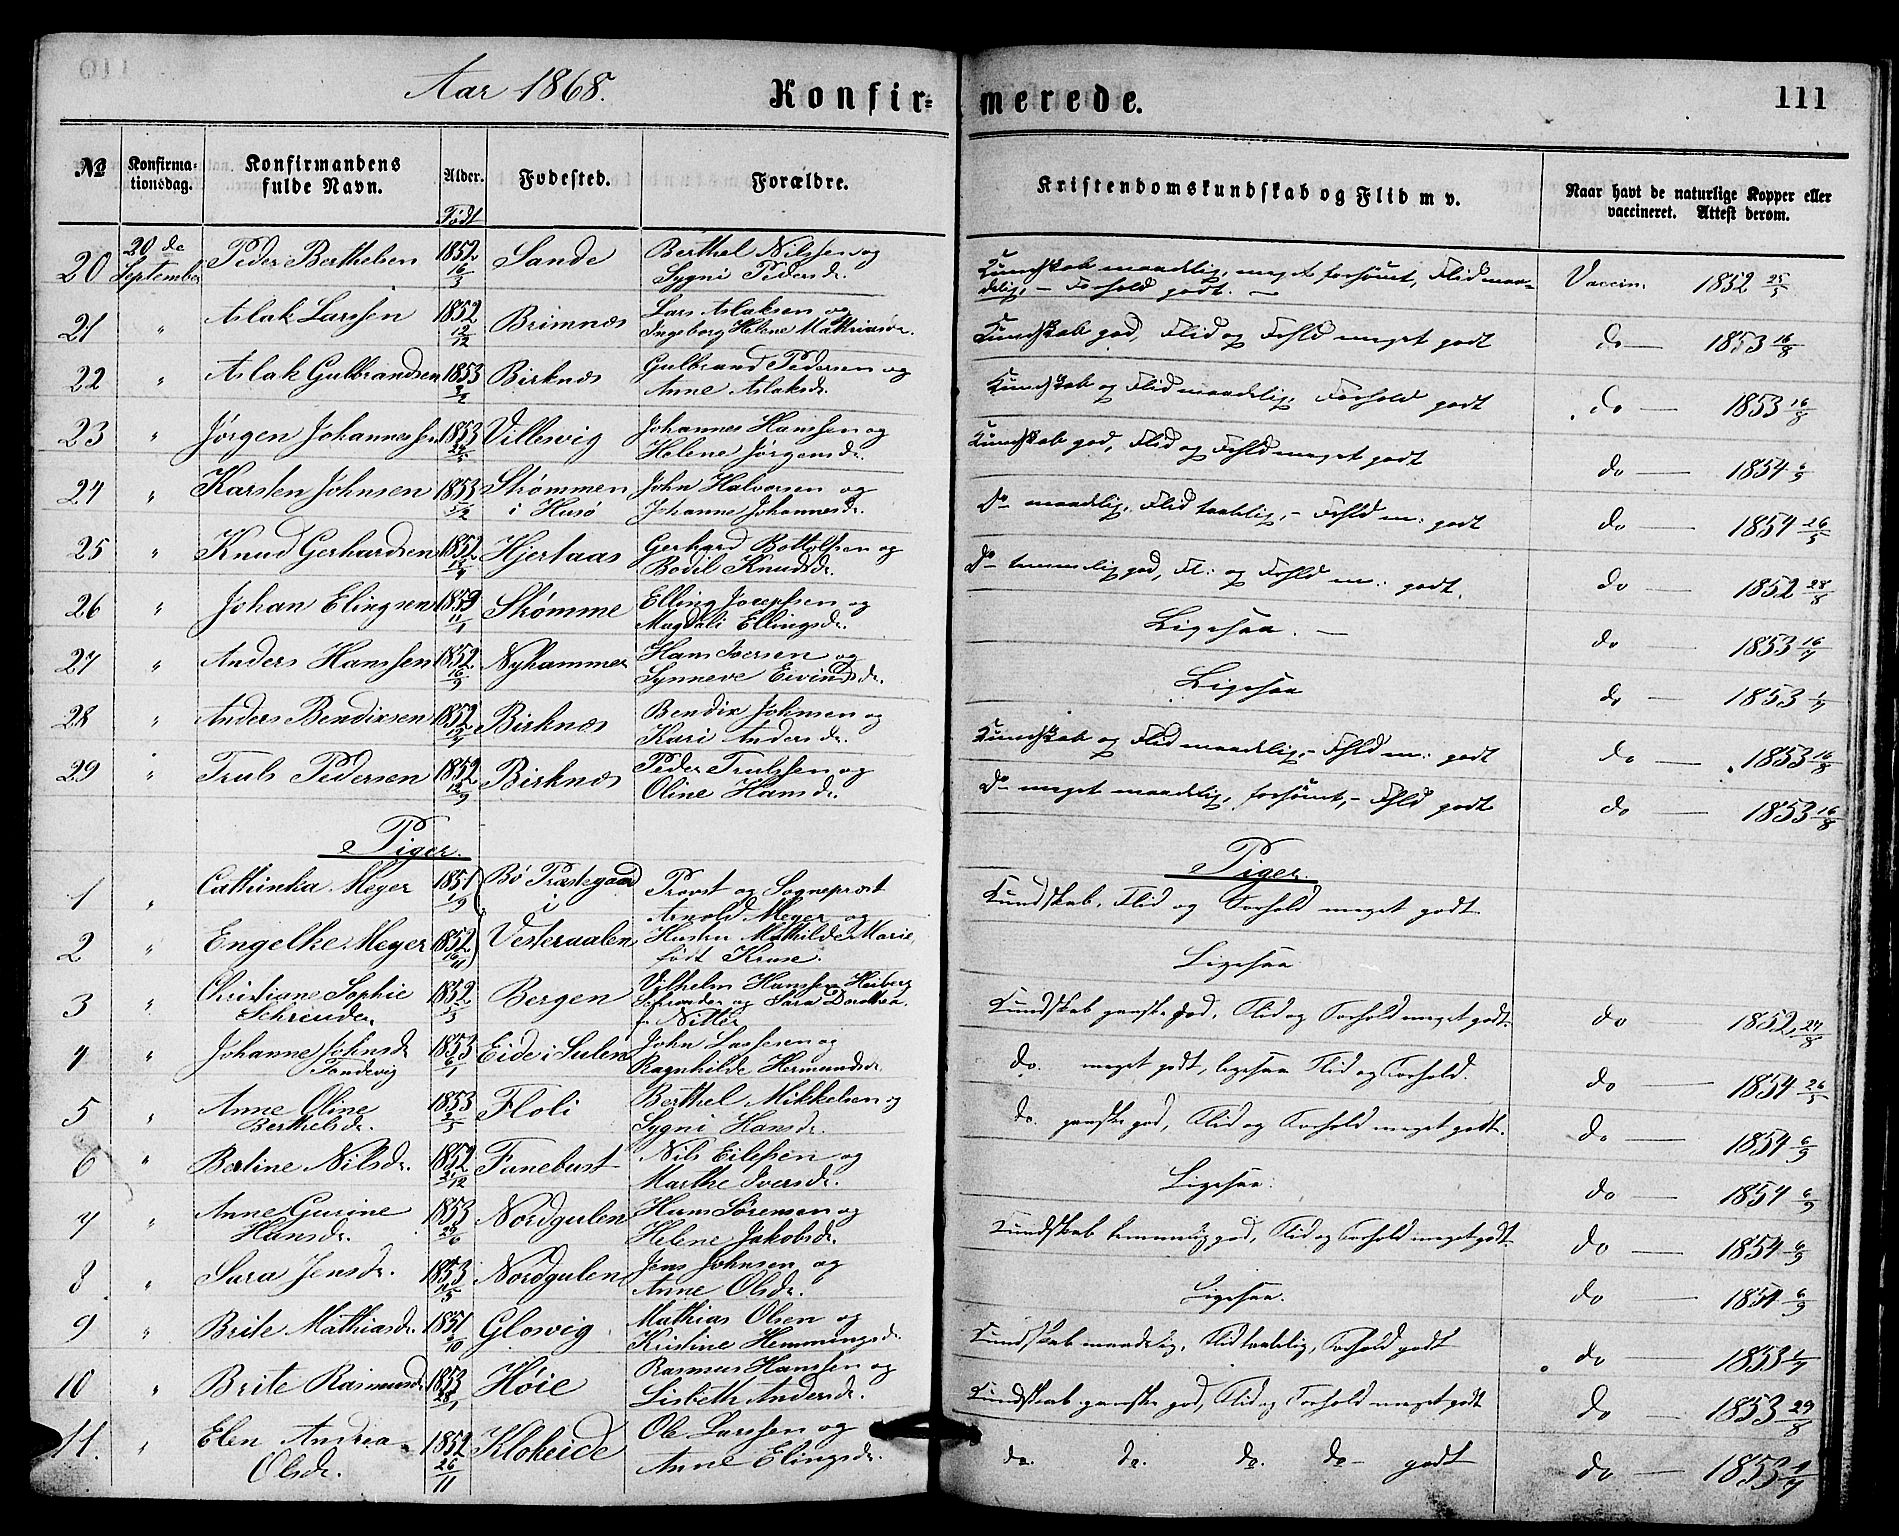 Aar 1868. Konfir= merede. 111
No Konfirma- tionsdag. Konfirmandens fulde Navn. Alder. Fødested. Forældre. Kristendomskundskab og Flid m v. Naar havt de naturlige Kopper eller vaccineret. Attest derom.
Født
20 20 de September Peder Berthelsen 1852 16/3 Sande Berthel Nilssen og Sygni Pedersdr. Kundskab maadelig, meget forsømt, Flid maa- delig, – Forhold godt. – Vaccin. 1852 25/5
21 " Aslak Larssen 1852 12/12 Brimnæs Lars Aslaksen og Ingeborg Helene Mathiasdr. Kundskab god, Flid og Fohld meget godt do – 1853 16/8
22 " Aslak Gulbrandsen 1853 Birknæs Gulbrand Pedersen og Anne Aslaksdr. Kundskab og Flid maadelig, Forhold godt do – 1853 16/8
23 " Jørgen Johannessen 1853 Villesvig Johannes Hanssen og Helene Jørgensdr. Kundskab god, Flid og Fohld meget godt do – 1854 6/9
24 " Karsten Johnsen 1853 Strømmen i Husø John Halvorsen og Johanne Johannesdr. Do maadelig, Flid taalelig, – Fohld m: godt do – 1854 26/5
25 " Knud Gerhardsen 1852 Hjertaas Gerhard Bottolfsen og Bodil Knudsdr. Do temmelig god, Fl: og Fohld m: godt. do – 1852 28/8
26 " Johan Elingsen Strømme Elling Josephsen og Magdali Ellingsdr. Ligesaa. – do – 1853 16/7
27 " Anders Hanssen 1852 16/9 Nyhammer Hans Iversen og Synneve Eivindsdr. Ligesaa do – 1853
28 " Anders Bendixsen 1852 Birknæs Bendix Johnsen og Kari Andersdr. Kundskab og Flid maadelig, – Fohld m: godt do – 1853 16/8
29 " Truls Pedersen 1852 12/9 Birknæs Peder Trulssen og Oline Hansdr. Do meget maadelig, forsømt, – Fohld godt do – 1853 16/8
Piger. Piger.
1 " Cathinka Meyer 1851 1/9 Bø Præstegaard i Provst og Sogneprest Arnold Meyer og Kundskab, Flid og Forhold meget godt
2 " Engelke Meyer 1852 16/11 Vesteraalen Hustru Mathilde Marie, født Kruse. Ligesaa
3 " Christiane Sophie Schreuder 1852 Bergen Vilhelm Hanssen Heiberg Schreuder og Sara Dorothea f. Nitter Kundskab ganske god, Flid og Forhold meget godt. do – 1852 28/8
4 " Johanne Johnsdr Tandevig 1853 6/1 Eide i Sulen John Lassesen og Ragnhilde Hermundsdr. do. meget godt, ligesaa Flid og Forhold. do – 1854 26/5
5 " Anne Oline Berthelsdr. 1853 2/5 Floli Berthel Mikkelsen og Sygni Hansdr. do. ganske god, Flid og Forhold meget godt. do – 1854 6/9
6 " Bertine Nilsdr. 1852 21/12 Fanebust Nils Eilefsen og Marthe Iversdr. Ligesaa. do – 1854 6/9
7 " Anne Gurine Hansdr. 1853 Nordgulen Hans Sørensen og Helene Jakobsdr. Kundskab temmelig god, Flid og Forhold meget godt. do – 1854 6/9
8 " Sara Jensdr. 1853 Nordgulen Jens Johnsen og Anne Olsdr. Ligesaa. do – 1854 6/9
9 " Brite Mathiasdr. 1851 Glosvig Mathias Olsen og Kristine Hemmingsdr. Kundskab maadelig, Flid taalelig, Forhold godt do – 1853
10 " Brite Rasmusdr 1853 28/1 Høie Rasmus Hanssen og Lisbeth Andersdr. Kundskab ganske god, Flid og Forhold meget godt do – 1853 29/8
11. " Elen Andrea Olsdr. 1852 26/11 Kloheide Ole Larssen og Anne Elingsdr. do. do. do. do – godt do – 1853